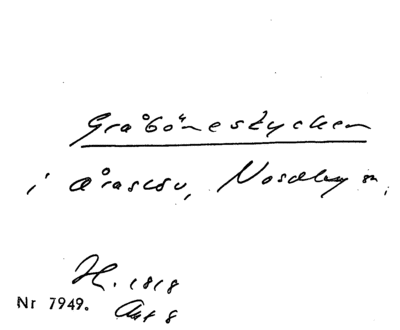 Gråbönestycken
i Åraslöv, Nosaby sn.
H. 1818
Nr 7949. Avt 8